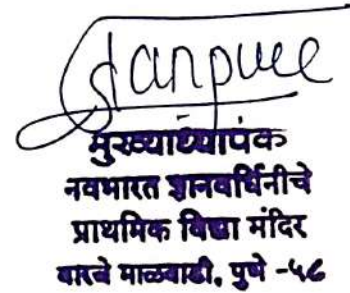 मुख्याध्यापक
नवभारत ज्ञानवर्धिनीचे
प्राथमिक विद्या मंदिर
वारजे माळवाडी, पुणे -५८